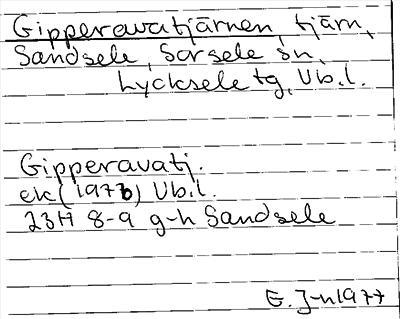 Gipperavatjärnen, tjärn,
Sandsele, Sorsele sn,
Lycksele tg, Vb.l.
Gipperavatj.
ek (1976) Vb.l.
23H 8-9 g-h Sandsele
E. J-n 1977